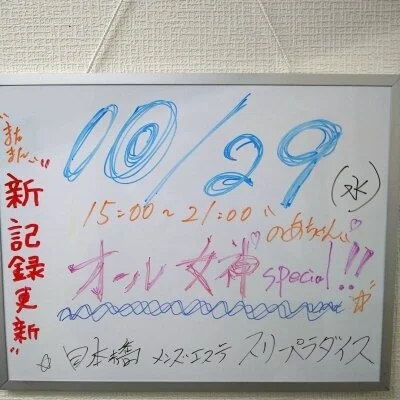 10/29(水)
15:00〜21:00
"のあちゃん"
オール女神special!!
☆日本橋 メンズエステ スリーパラダイス
"新記録更新"